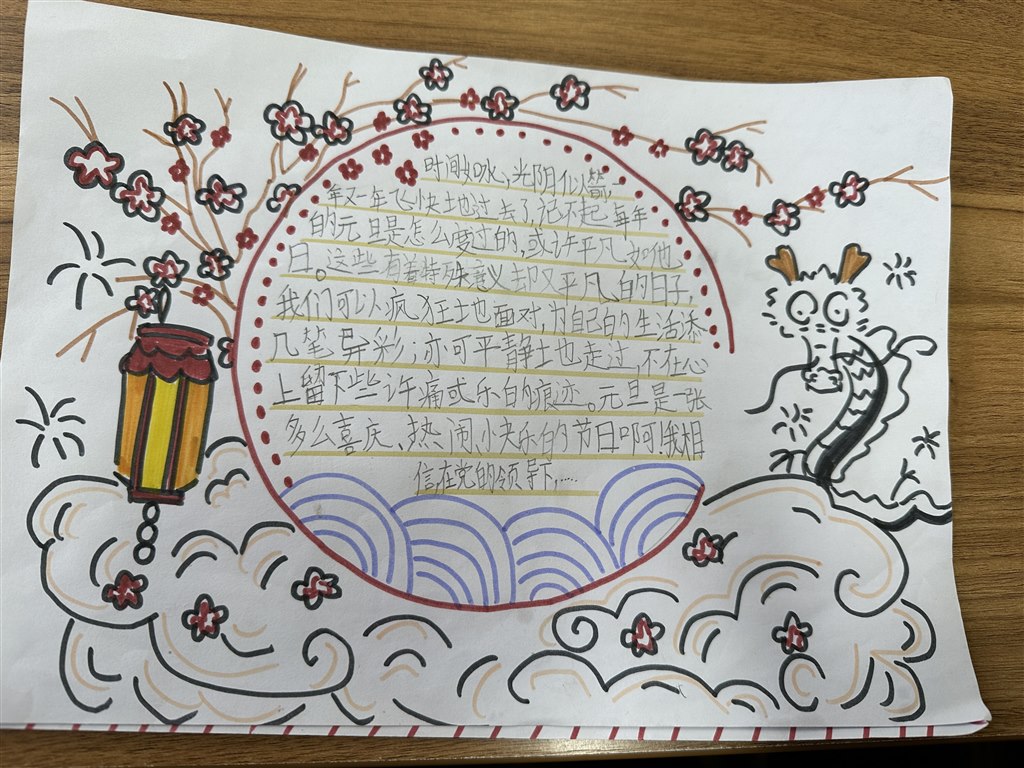 时间如水，光阴似箭，一
年又一年飞快地过去了，记不起每年
的元旦是怎么度过的，或许平凡如他
日。这些有着特殊意义却又平凡的日子，
我们可以疯狂地面对，为自己的生活添
几笔异彩；亦可平静地走过，不在心
上留下些许痛或乐的痕迹。元旦是一张
多么喜庆、热闹小快乐的节日啊！我相
信在党的领导下，……